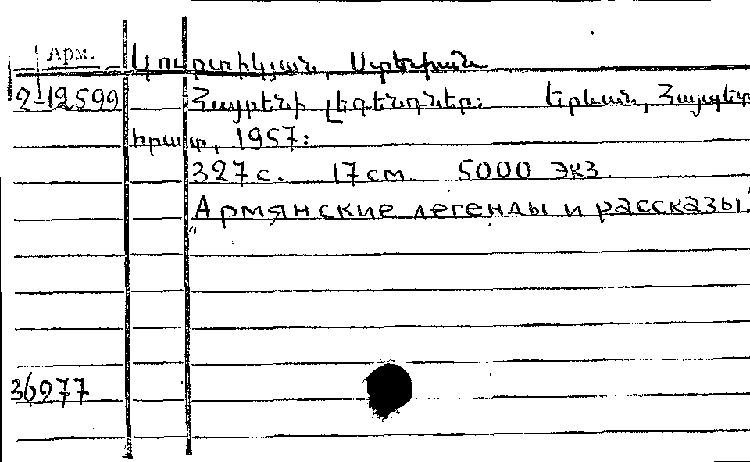 Арм.
Կուրտիկյան, Ստեփան
2-12599 Հայրենի լեգենդներ: Երևան, Հայպետ
հրատ, 1957:
327 с. 17 см. 5000 экз.
"Армянские легенды и рассказы"
36277